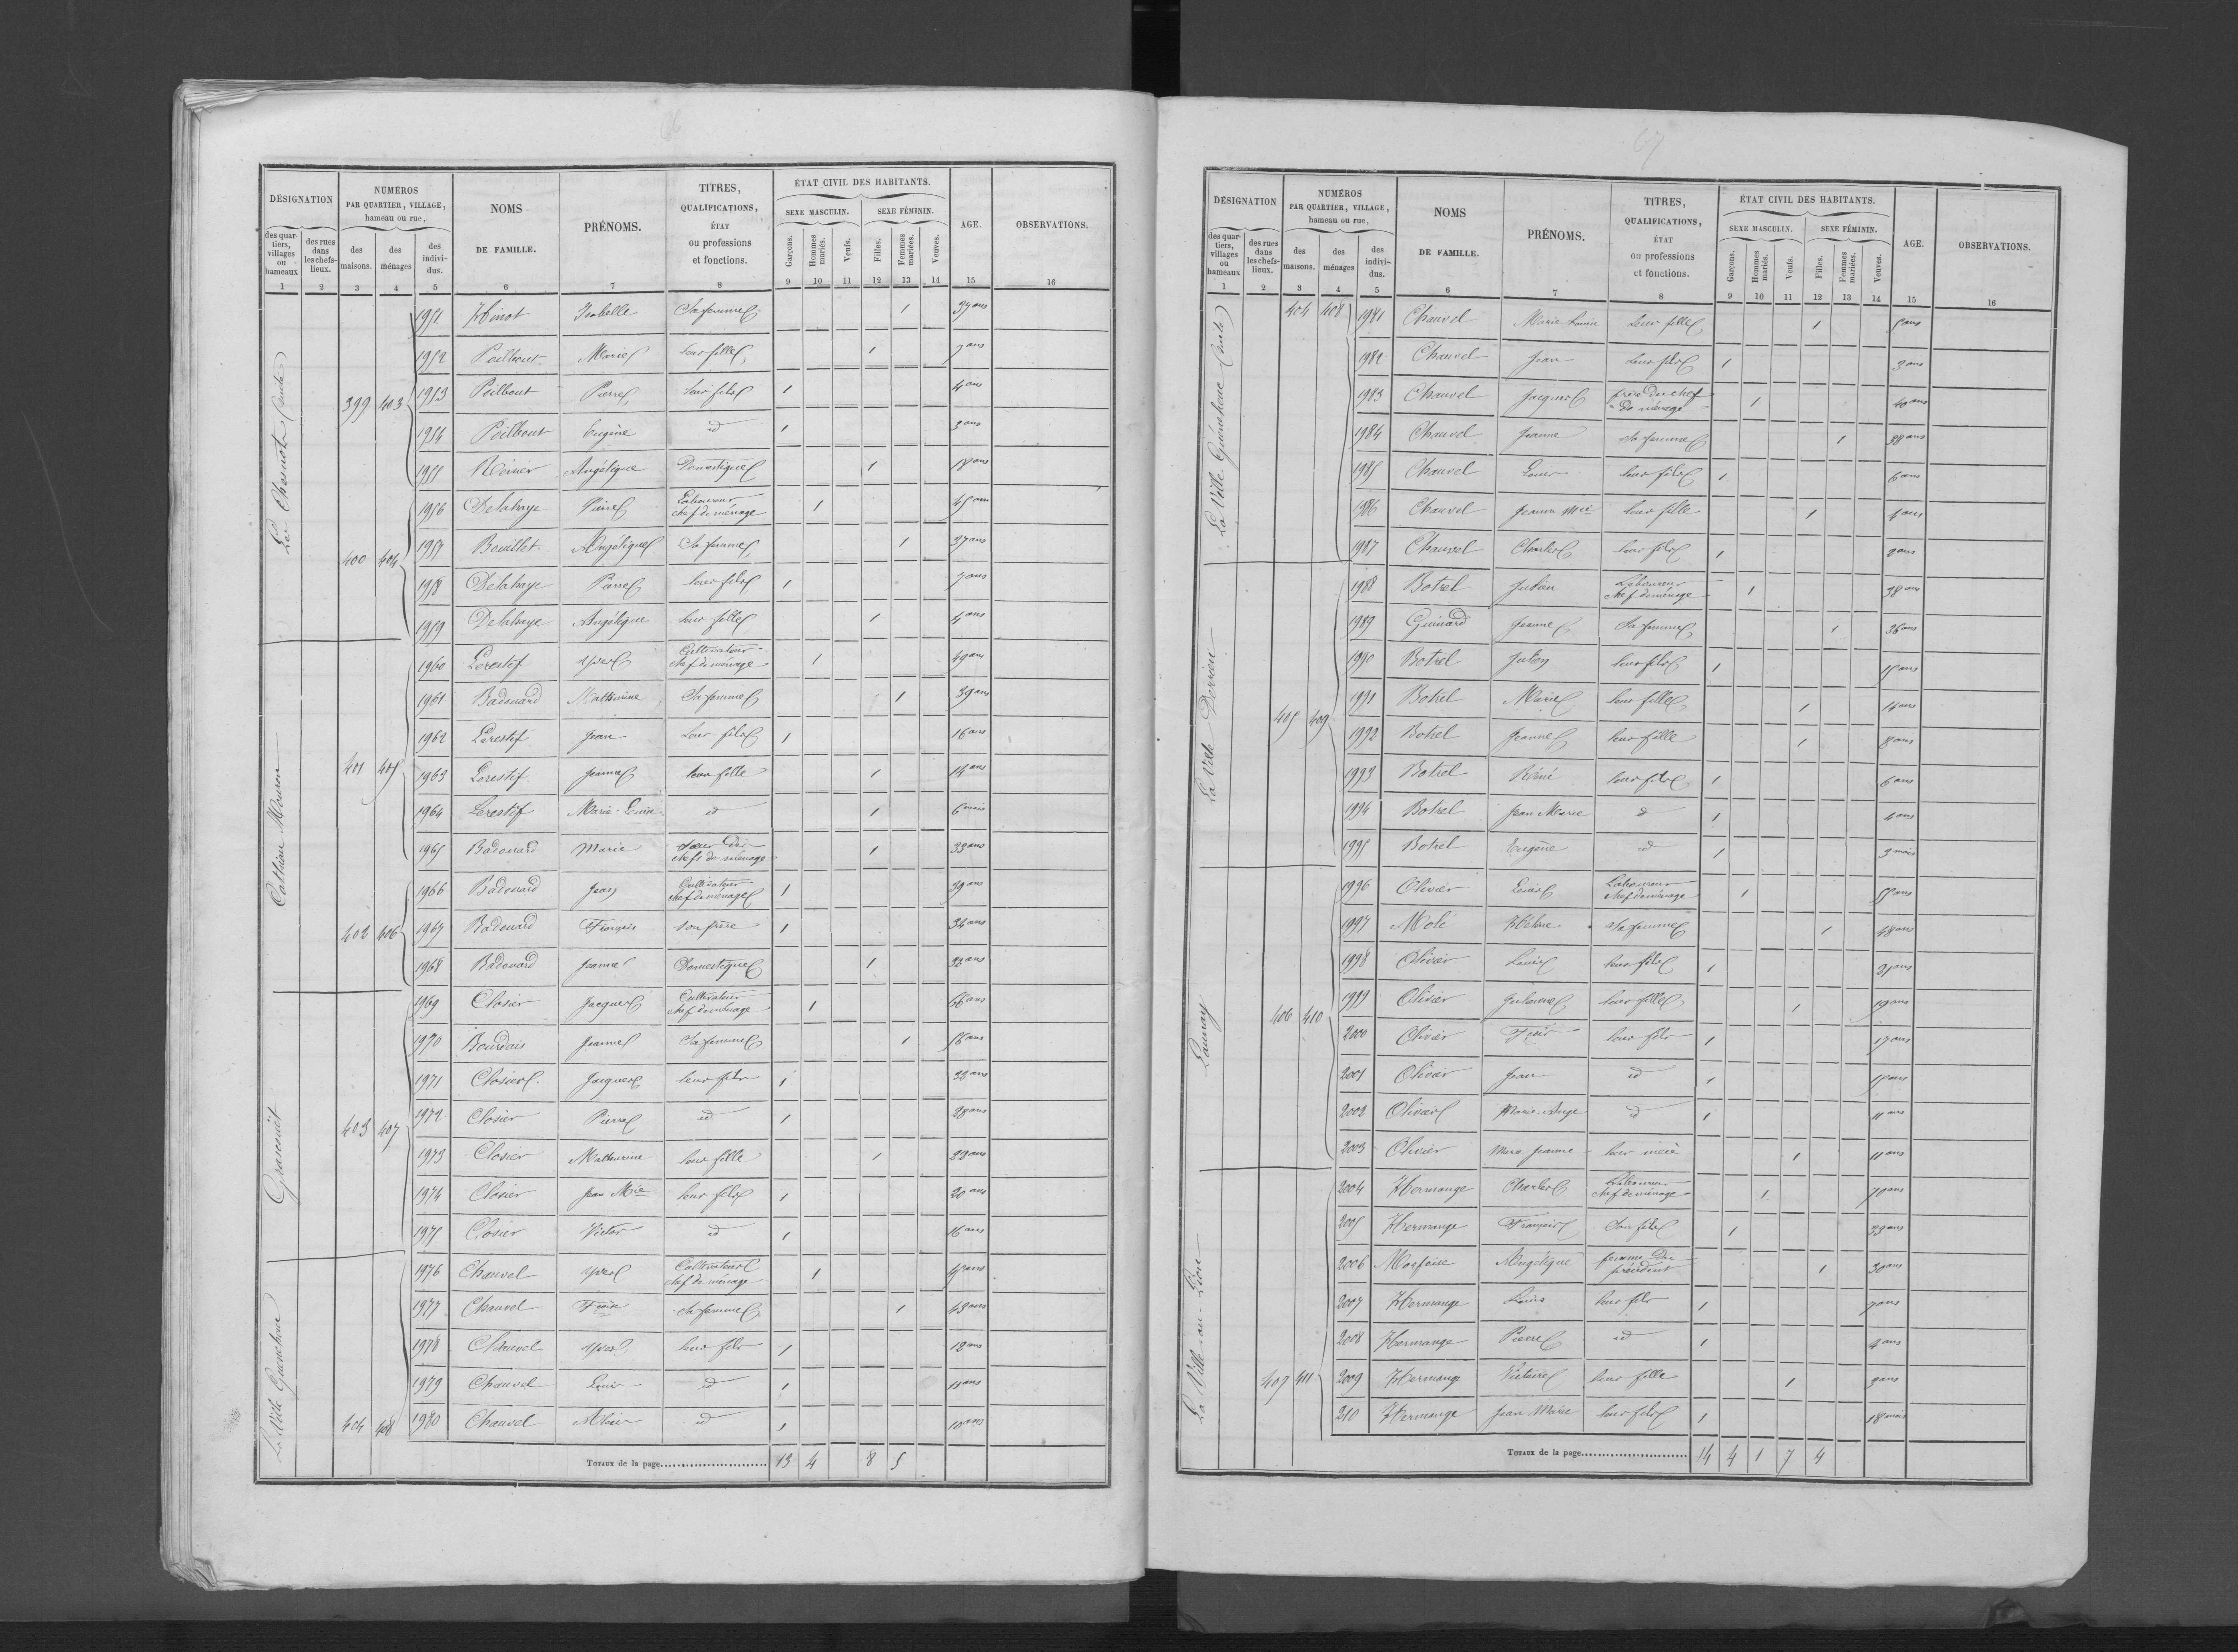 66
DÉSIGNATION
NUMÉROS
PAR QUARTIER, VILLAGE,
hameau ou rue,
NOMS
DE FAMILLE.
PRÉNOMS.
TITRES,
QUALIFICATIONS,
ÉTAT
ou professions
et fonctions.
ÉTAT CIVIL DES HABITANTS.
SEXE MASCULIN. SEXE FÉMININ.
AGE.
OBSERVATIONS.
des quar-
tiers,
villages
ou
hameaux
des rues
dans
les chefs-
lieux.
des
maisons.
des
ménages
des
indivi-
dus.
Garçons.
Hommes
mariés.
Veufs.
Filles.
Femmes
mariées.
Veuves.
1 2 3 4 5 6 7 8 9 10 11 12 13 14 15 16
1951 Isabelle Sa femme 1 37 ans
1952 Poilbout Marie leur fille 1 7 ans
399 403 1953 Poilbout Pierre leur fils 1 4 ans
1954 Poilbout Eugène id 1 3 ans
1955 Angélique Domestique 1 18 ans
1956 Delahaye Pierre Laboureur chef de ménage 1 45 ans
400 404 1957 Bouillet Angélique Sa femme 1 37 ans
1958 Delahaye Pierre leur fils 1 7 ans
1959 Delahaye Angélique leur fille 1 4 ans
1960 Lerestif Yves Cultivateur chef de ménage 1 49 ans
1961 Badouard Mathurine Sa femme 1 39 ans
1962 Lerestif Jean Leur fils 1 16 ans
401 405 1963 Lerestif Jeanne leur fille 1 14 ans
1964 Lerestif Marie-Louise id 1 6 mois
1965 Badouard Marie Sœur du chef de ménage 1 33 ans
1966 Badouard Jean Cultivateur chef de ménage 1 39 ans
402 406 1967 Badouard François son frère 1 34 ans
1968 Badouard Jeanne Domestique 1 32 ans
1969 Closier Jacques Cultivateur chef de ménage 1 66 ans
1970 Bourdais Jeanne Sa femme 1 56 ans
1971 Closier Jacques leur fils 1 32 ans
403 407 1972 Closier Pierre id 1 28 ans
1973 Closier Mathurine leur fille 1 22 ans
1974 Closier Jean Mie leur fils 1 20 ans
1975 Closier Victor id 1 16 ans
1976 Chauvel Yves Cultivateur chef de ménage 1
1977 Chauvel Fçoise Sa femme 1 43 ans
1978 Chauvel Yves leur fils 1 12 ans
1979 Chauvel Louis id 1 11 ans
404 408 1980 Chauvel id 1 10 ans
TOTAUX de la page 13 4 8 5
67
DÉSIGNATION
NUMÉROS
PAR QUARTIER, VILLAGE,
hameau ou rue,
NOMS
DE FAMILLE.
PRÉNOMS.
TITRES,
QUALIFICATIONS,
ÉTAT
ou professions
et fonctions.
ÉTAT CIVIL DES HABITANTS.
SEXE MASCULIN. SEXE FÉMININ.
AGE.
OBSERVATIONS.
des quar-
tiers,
villages
ou
hameaux
des rues
dans
les chefs-
lieux.
des
maisons.
des
ménages
des
indivi-
dus.
Garçons.
Hommes
mariés.
Veufs.
Filles.
Femmes
mariées.
Veuves.
1 2 3 4 5 6 7 8 9 10 11 12 13 14 15 16
404 408 1981 Chauvel Marie Louise leur fille 1 5 ans
1982 Chauvel Jean Leur fils 1 3 ans
1983 Chauvel Jacques frère du chef de ménage 1 40 ans
1984 Chauvel Jeanne Sa femme 1 38 ans
1985 Chauvel Louis leur fils 1 6 ans
1986 Chauvel Jeanne Mie leur fille 1 4 ans
1987 Chauvel Charles leur fils 1 2 ans
La Ville Derrien
1988 Botrel Julien Laboureur chef de ménage 1 38 ans
1989 Guinard Jeanne Sa femme 1 36 ans
1990 Botrel Julien leur fils 1 15 ans
1991 Botrel Marie leur fille 1 14 ans
405 409 1992 Botrel Jeanne leur fille 1 8 ans
1993 Botrel Réné leur fils 1 6 ans
1994 Botrel Jean Marie id 1 4 ans
1995 Botrel Eugène id 1 3 mois
Launay
1996 Olivier Louis Laboureur chef de ménage 1 55 ans
1997 Molé Hélène Sa femme 1 48 ans
1998 Olivier Louis leur fils 1 21 ans
406 410 1999 Olivier leur fille 1 19 ans
2000 Olivier Fçois leur fils 1 17 ans
2001 Olivier Jean id 1 15 ans
2002 Olivier Marie Ange id 1 11 ans
2003 Olivier Marie Jeanne leur nièce 1 11 ans
2004 Hermange Charles Laboureur chef de ménage 1 70 ans
2005 Hermange François Son fils 1 33 ans
2006 Angélique femme du précédent 1 30 ans
2007 Hermange Louis leur fils 1 7 ans
2008 Hermange Pierre id 1 4 ans
407 411 2009 Hermange Victoire leur fille 1 3 ans
210 Hermange Jean Marie leur fils 1 18 mois
TOTAUX de la page 14 4 1 7 4